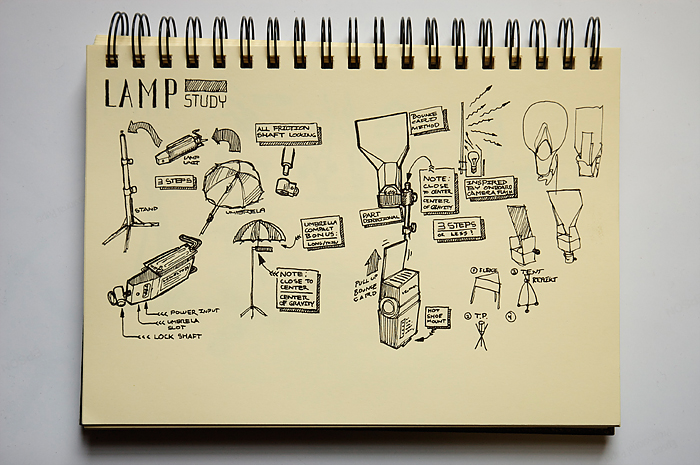 LAMP
STUDY
LAMP
UNIT
3 STEPS
STAND
UMBRELLA
ALL FRICTION
SHAFT LOCKING
UMBRELLA
COMPACT
BONUS:
NOTE:
CLOSE TO
CENTER
CENTER
OF GRAVITY
POWER INPUT
UMBRELLA
SLOT
LOCK SHAFT
BOUNCE
CARD
METHOD
NOTE:
CLOSE
TO CENTER
CENTER OF
GRAVITY
INSPIRED
BY ONBOARD
CAMERA FLASH
PART
DIRECTIONAL
3 STEPS
OR LESS!
PULL UP
BOUNCE
CARD
HOT
SHOE
MOUNT
①
② TENT
③ T.P.
④